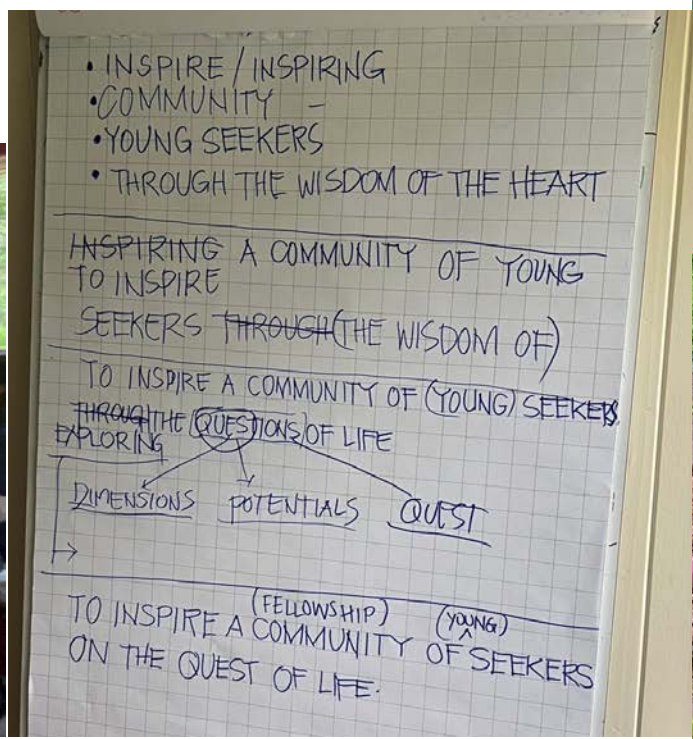 • INSPIRE / INSPIRING
• COMMUNITY –
• YOUNG SEEKERS
• THROUGH THE WISDOM OF THE HEART
INSPIRING A COMMUNITY OF YOUNG
TO INSPIRE
SEEKERS THROUGH (THE WISDOM OF)
TO INSPIRE A COMMUNITY OF (YOUNG) SEEKERS
THROUGH THE (QUESTIONS) OF LIFE
EXPLORING
DIMENSIONS POTENTIALS QUEST
(FELLOWSHIP) (YOUNG)
TO INSPIRE A COMMUNITY OF SEEKERS
ON THE QUEST OF LIFE.